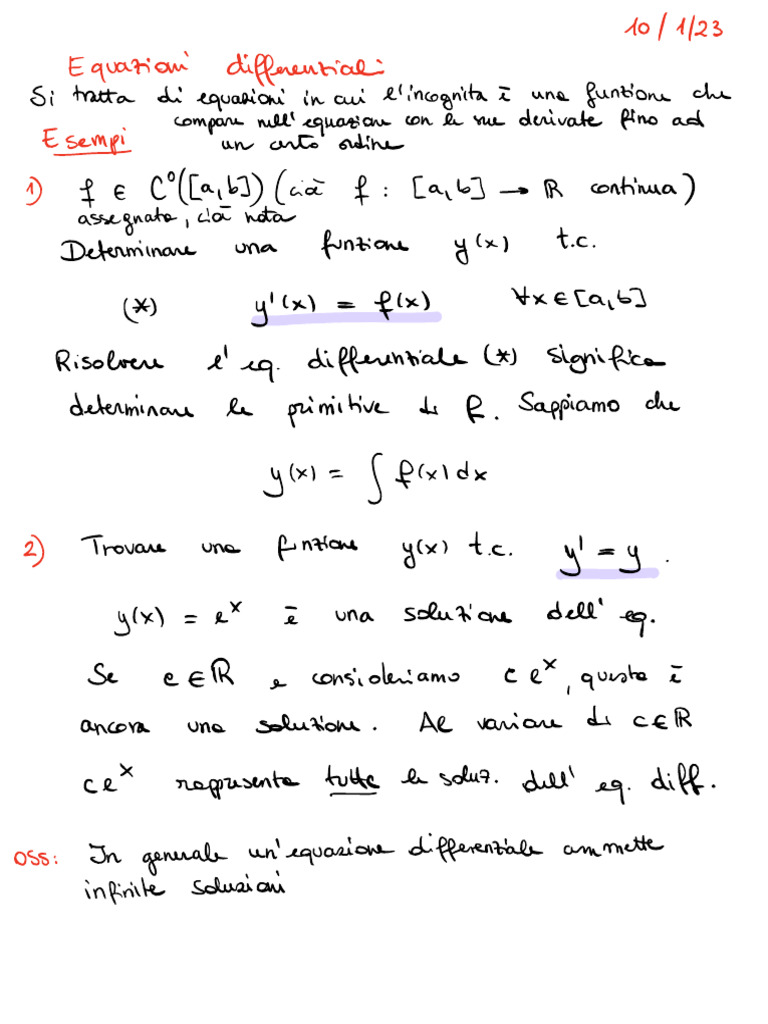 10/1/23
Equazioni differenziali
Si tratta di equazioni in cui l'incognita è una funzione che
compare nell'equazione con le sue derivate fino ad
un certo ordine
Esempi
1) f ∈ C⁰([a,b]) (cioè f : [a,b] → ℝ continua)
assegnata, cioè nota
Determinare una funzione y(x) t.c.
(*) y'(x) = f(x) ∀x∈[a,b]
Risolvere l'eq. differenziale (*) significa
determinare le primitive di f. Sappiamo che
y(x) = ∫ f(x) dx
2) Trovare una funzione y(x) t.c. y' = y .
y(x) = eˣ è una soluzione dell'eq.
Se c∈ℝ e consideriamo c eˣ, questa è
ancora una soluzione. Al variare di c∈ℝ
c eˣ rappresenta tutte le soluz. dell'eq. diff.
OSS: In generale un'equazione differenziale ammette
infinite soluzioni